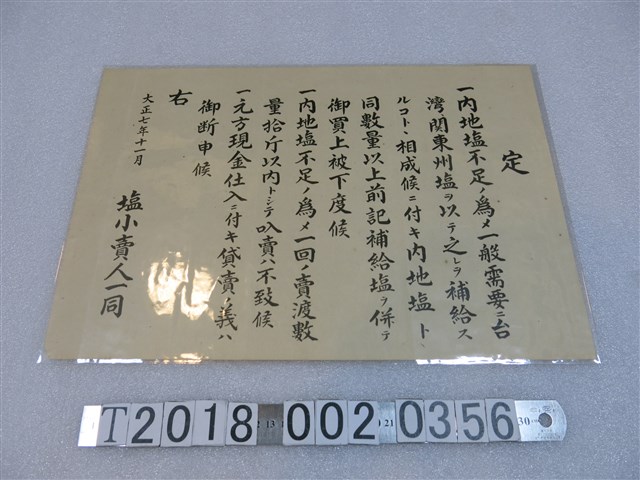 定
一内地塩不足ノ為メ一般需要ニ台
湾関東州塩ヲ以テ之レヲ補給ス
ルコトヽ相成候ニ付キ内地塩ト
同数量以上前記補給塩ヲ併テ
御買上被下度候
一内地塩不足ノ為メ一回ノ賣渡数
量拾斤以内トシテ叺賣ハ不致候
一元方現金仕入ニ付キ貸賣ノ義ハ
御断申候
右
大正七年十一月
塩小賣人一同
T2018 002 0356
13
21
30